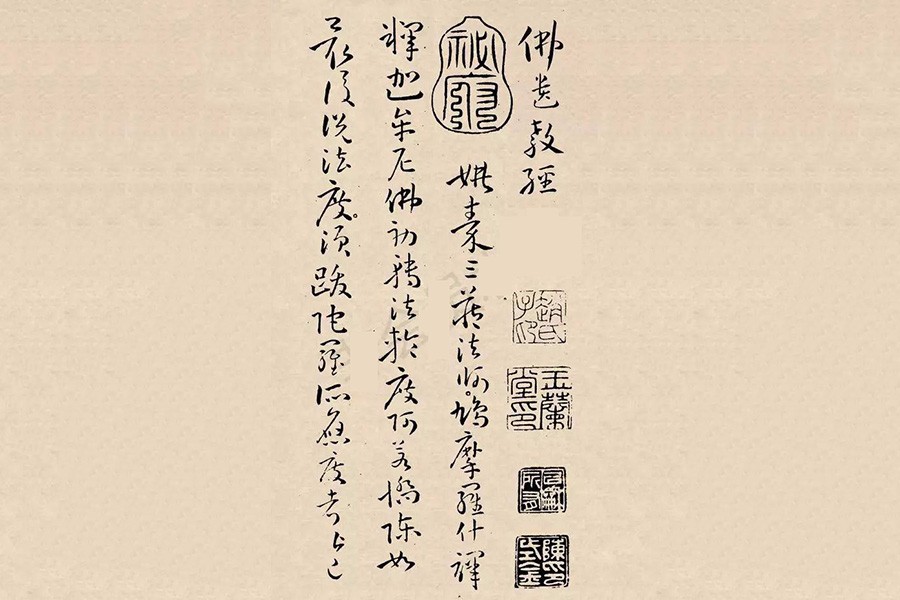 佛遺教經
祕府
姚秦三藏法師鳩摩羅什譯
釋迦牟尼佛初轉法輪度阿若憍陳如
最後說法度須跋陀羅所應度者皆已
玉蘭堂印